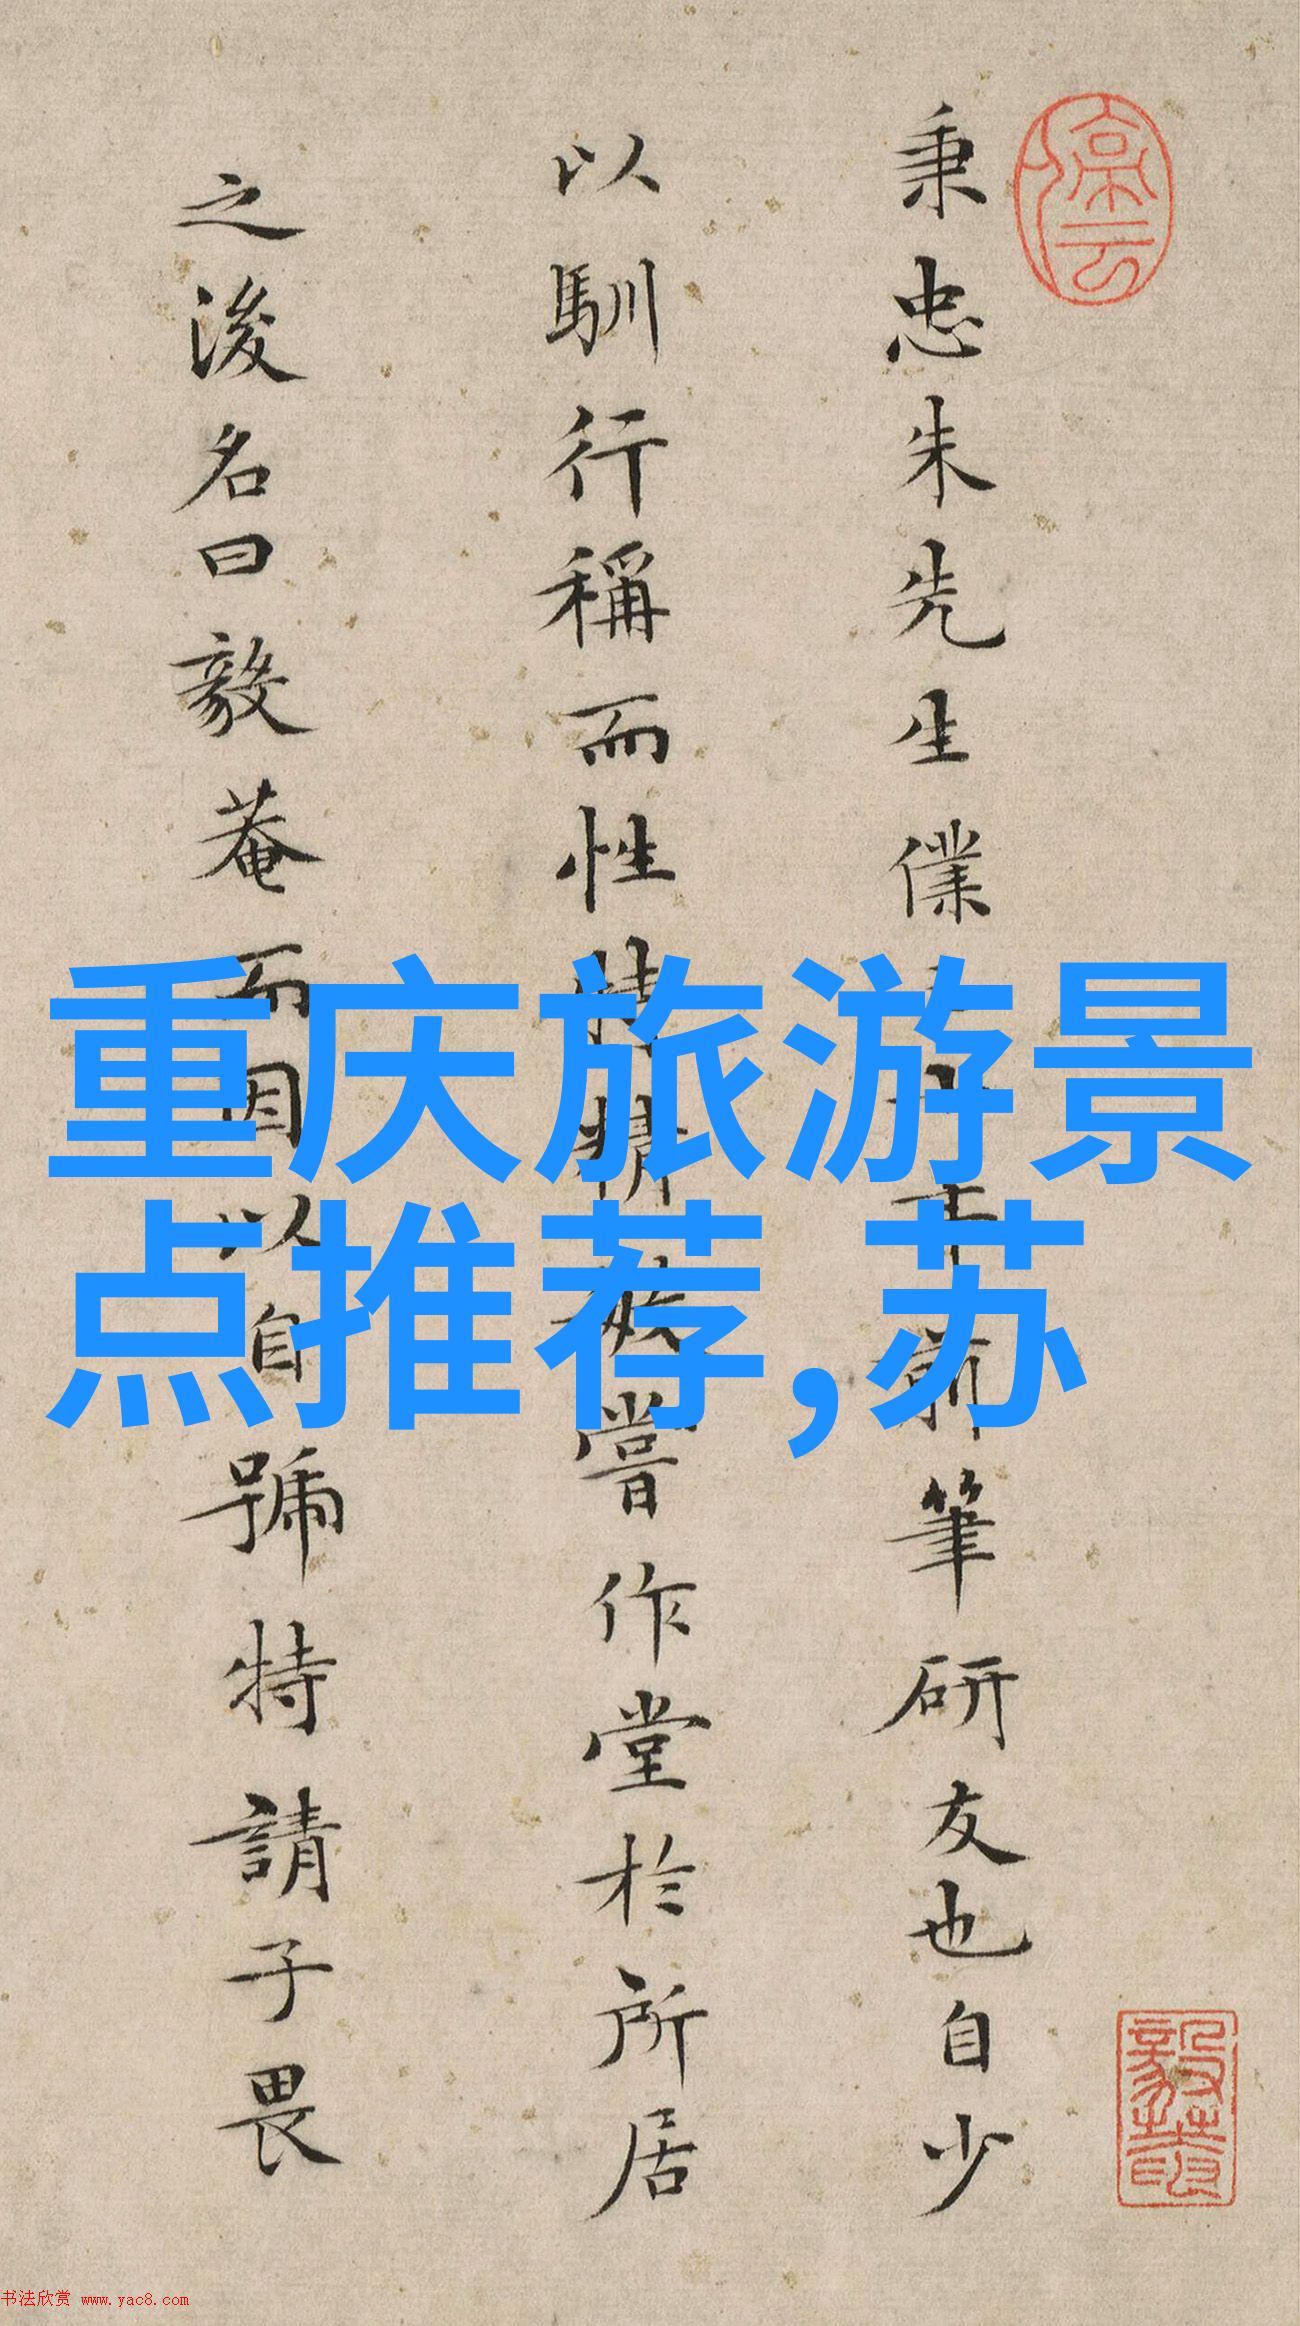 秉忠朱先生僕
筆研友也自少
以馴行稱而性
嘗作堂於所居
之後名曰毅菴而因以自號特請子畏
重庆旅游景
点推荐,苏
书法欣赏 www.yac8.com